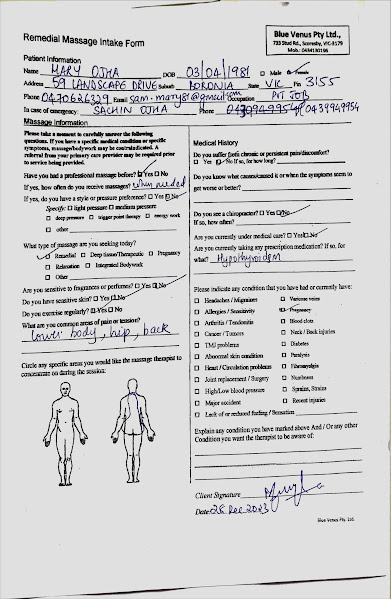 Remedial Massage Intake Form
Blue Venus Pty Ltd.,
733 Stud Rd., Scoresby, VIC-3179
Patient Information
Name MARY OJHA DOB 03/04/1981 ☐ Male ☑ Female
Address 59 LANDSCAPE DRIVE Suburb BORONIA State VIC Pin 3155
Phone 0470626329 Email Occupation PVT JOB
In case of emergency: SACHIN OJHA Phone 0439949954
Massage Information
Please take a moment to carefully answer the following
questions. If you have a specific medical condition or specific
symptoms, massage/bodywork may be contraindicated. A
referral from your primary care provider may be required prior
to service being provided.
Have you had a professional massage before? ☑ Yes ☐ No
If yes, how often do you receive massages? when needed
If yes, do you have a style or pressure preference? ☐ Yes ☑ No
Specific: ☐ light pressure ☐ medium pressure
☐ deep pressure ☐ trigger point therapy ☐ energy work
☐ other
What type of massage are you seeking today?
☑ Remedial ☐ Deep tissue/Therapeutic ☐ Pregnancy
☐ Relaxation ☐ Integrated Bodywork
☐ Other
Are you sensitive to fragrances or perfumes? ☐ Yes ☑ No
Do you have sensitive skin? ☐ Yes ☑ No
Do you exercise regularly? ☐ Yes ☑ No
What are you common areas of pain or tension?
Lower body, hip, back
Circle any specific areas you would like the massage therapist to
concentrate on during the session:
Medical History
Do you suffer from chronic or persistent pain/discomfort?
☐ Yes ☑ No If so, for how long?
Do you know what causes/caused it or when the symptoms seem to
get worse or better?
Do you see a chiropractor? ☐ Yes ☑ No
If so, how often?
Are you currently under medical care? ☐ Yes ☑ No
Are you currently taking any prescription medication? If so, for
what? Hypothyroidism
Please indicate any condition that you have had or currently have:
☐ Headaches / Migraines ☐ Varicose veins
☐ Allergies / Sensitivity ☑ Pregnancy
☐ Arthritis / Tendonitis ☐ Blood clots
☐ Cancer / Tumors ☐ Neck / Back injuries
☐ TMJ problems ☐ Diabetes
☐ Abnormal skin condition ☐ Paralysis
☐ Heart / Circulation problems ☐ Fibromyalgia
☐ Joint replacement / Surgery ☐ Numbness
☐ High/Low blood pressure ☐ Sprains, Strains
☐ Major accident ☐ Recent injuries
☐ Lack of or reduced feeling / Sensation
Explain any condition you have marked above And / Or any other
Condition you want the therapist to be aware of:
Client Signature
Date: 28 Dec 2023
Blue Venus Pty. Ltd.